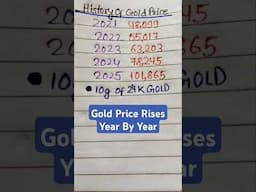 History Of Gold Price
2021 48,099
2022 55,017
2023 63,203
2024 78,245
2025 101,865
• 10g of 24K GOLD
Gold Price Rises
Year By Year